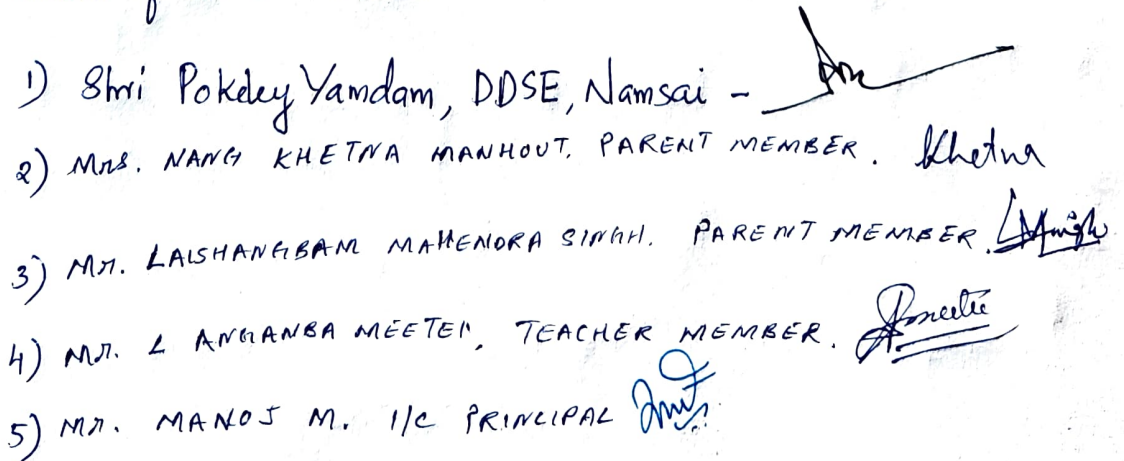 1) Shri Pokdey Yamdam, DDSE, Namsai -
2) Mrs. NANG KHETNA MANHOUT, PARENT MEMBER. Khetna
3) Mr. LAISHANGBAM MAHENDRA SINGH. PARENT MEMBER.
4) Mr. L ANGANBA MEETEI, TEACHER MEMBER.
5) Mr. MANOJ M. I/C PRINCIPAL